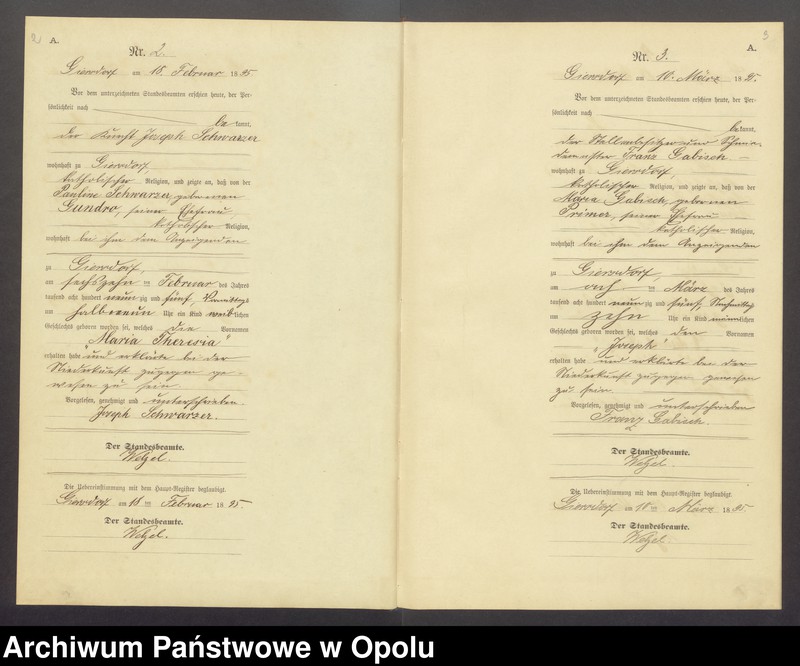 2
A.
Nr. 2.
Giersdorf am 18. Februar 1895
Vor dem unterzeichneten Standesbeamten erschien heute, der Per-
sönlichkeit nach
be kannt,
der Joseph Schwarzer
wohnhaft zu Giersdorf,
katholischer Religion, und zeigte an, daß von der
Pauline Schwarzer, geborenen
Gundro, seiner Ehefrau,
katholischer Religion,
wohnhaft bei ihm dem Anzeigenden
zu Giersdorf,
am sechszehn ten Februar des Jahres
tausend acht hundert neun zig und fünf, Vormittags
um halb neun Uhr ein Kind weiblichen
Geschlechts geboren worden sei, welches die Vornamen
"Maria Theresia"
erhalten habe und erklärte bei der
Niederkunft zugegen ge-
wesen zu sein.
Vorgelesen, genehmigt und unterschrieben
Joseph Schwarzer.
Der Standesbeamte.
Wetzel.
Die Uebereinstimmung mit dem Haupt-Register beglaubigt.
Giersdorf am 18 ten Februar 1895.
Der Standesbeamte.
Wetzel.
3
A.
Nr. 3.
Giersdorf am 10. März 1895.
Vor dem unterzeichneten Standesbeamten erschien heute, der Per-
sönlichkeit nach
be kannt,
der Stellenbesitzer und Schmie-
demeister Franz Gabisch
wohnhaft zu Giersdorf,
katholischer Religion, und zeigte an, daß von der
Maria Gabisch, geborenen
seiner Ehefrau
katholischer Religion,
wohnhaft bei ihm dem Anzeigenden
zu Giersdorf,
am acht ten März des Jahres
tausend acht hundert neun zig und fünf, Nachmittag
um zehn Uhr ein Kind männlichen
Geschlechts geboren worden sei, welches den Vornamen
"Joseph"
erhalten habe und erklärte bei der
Niederkunft zugegen gewesen
zu sein.
Vorgelesen, genehmigt und unterschrieben
Franz Gabisch.
Der Standesbeamte.
Wetzel.
Die Uebereinstimmung mit dem Haupt-Register beglaubigt.
Giersdorf am ten März 1895.
Der Standesbeamte.
Wetzel.
Archiwum Państwowe w Opolu